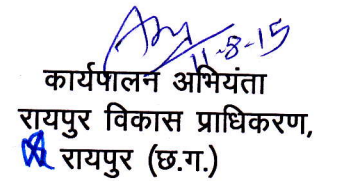 11-8-15
कार्यपालन अभियंता
रायपुर विकास प्राधिकरण,
रायपुर (छ.ग.)